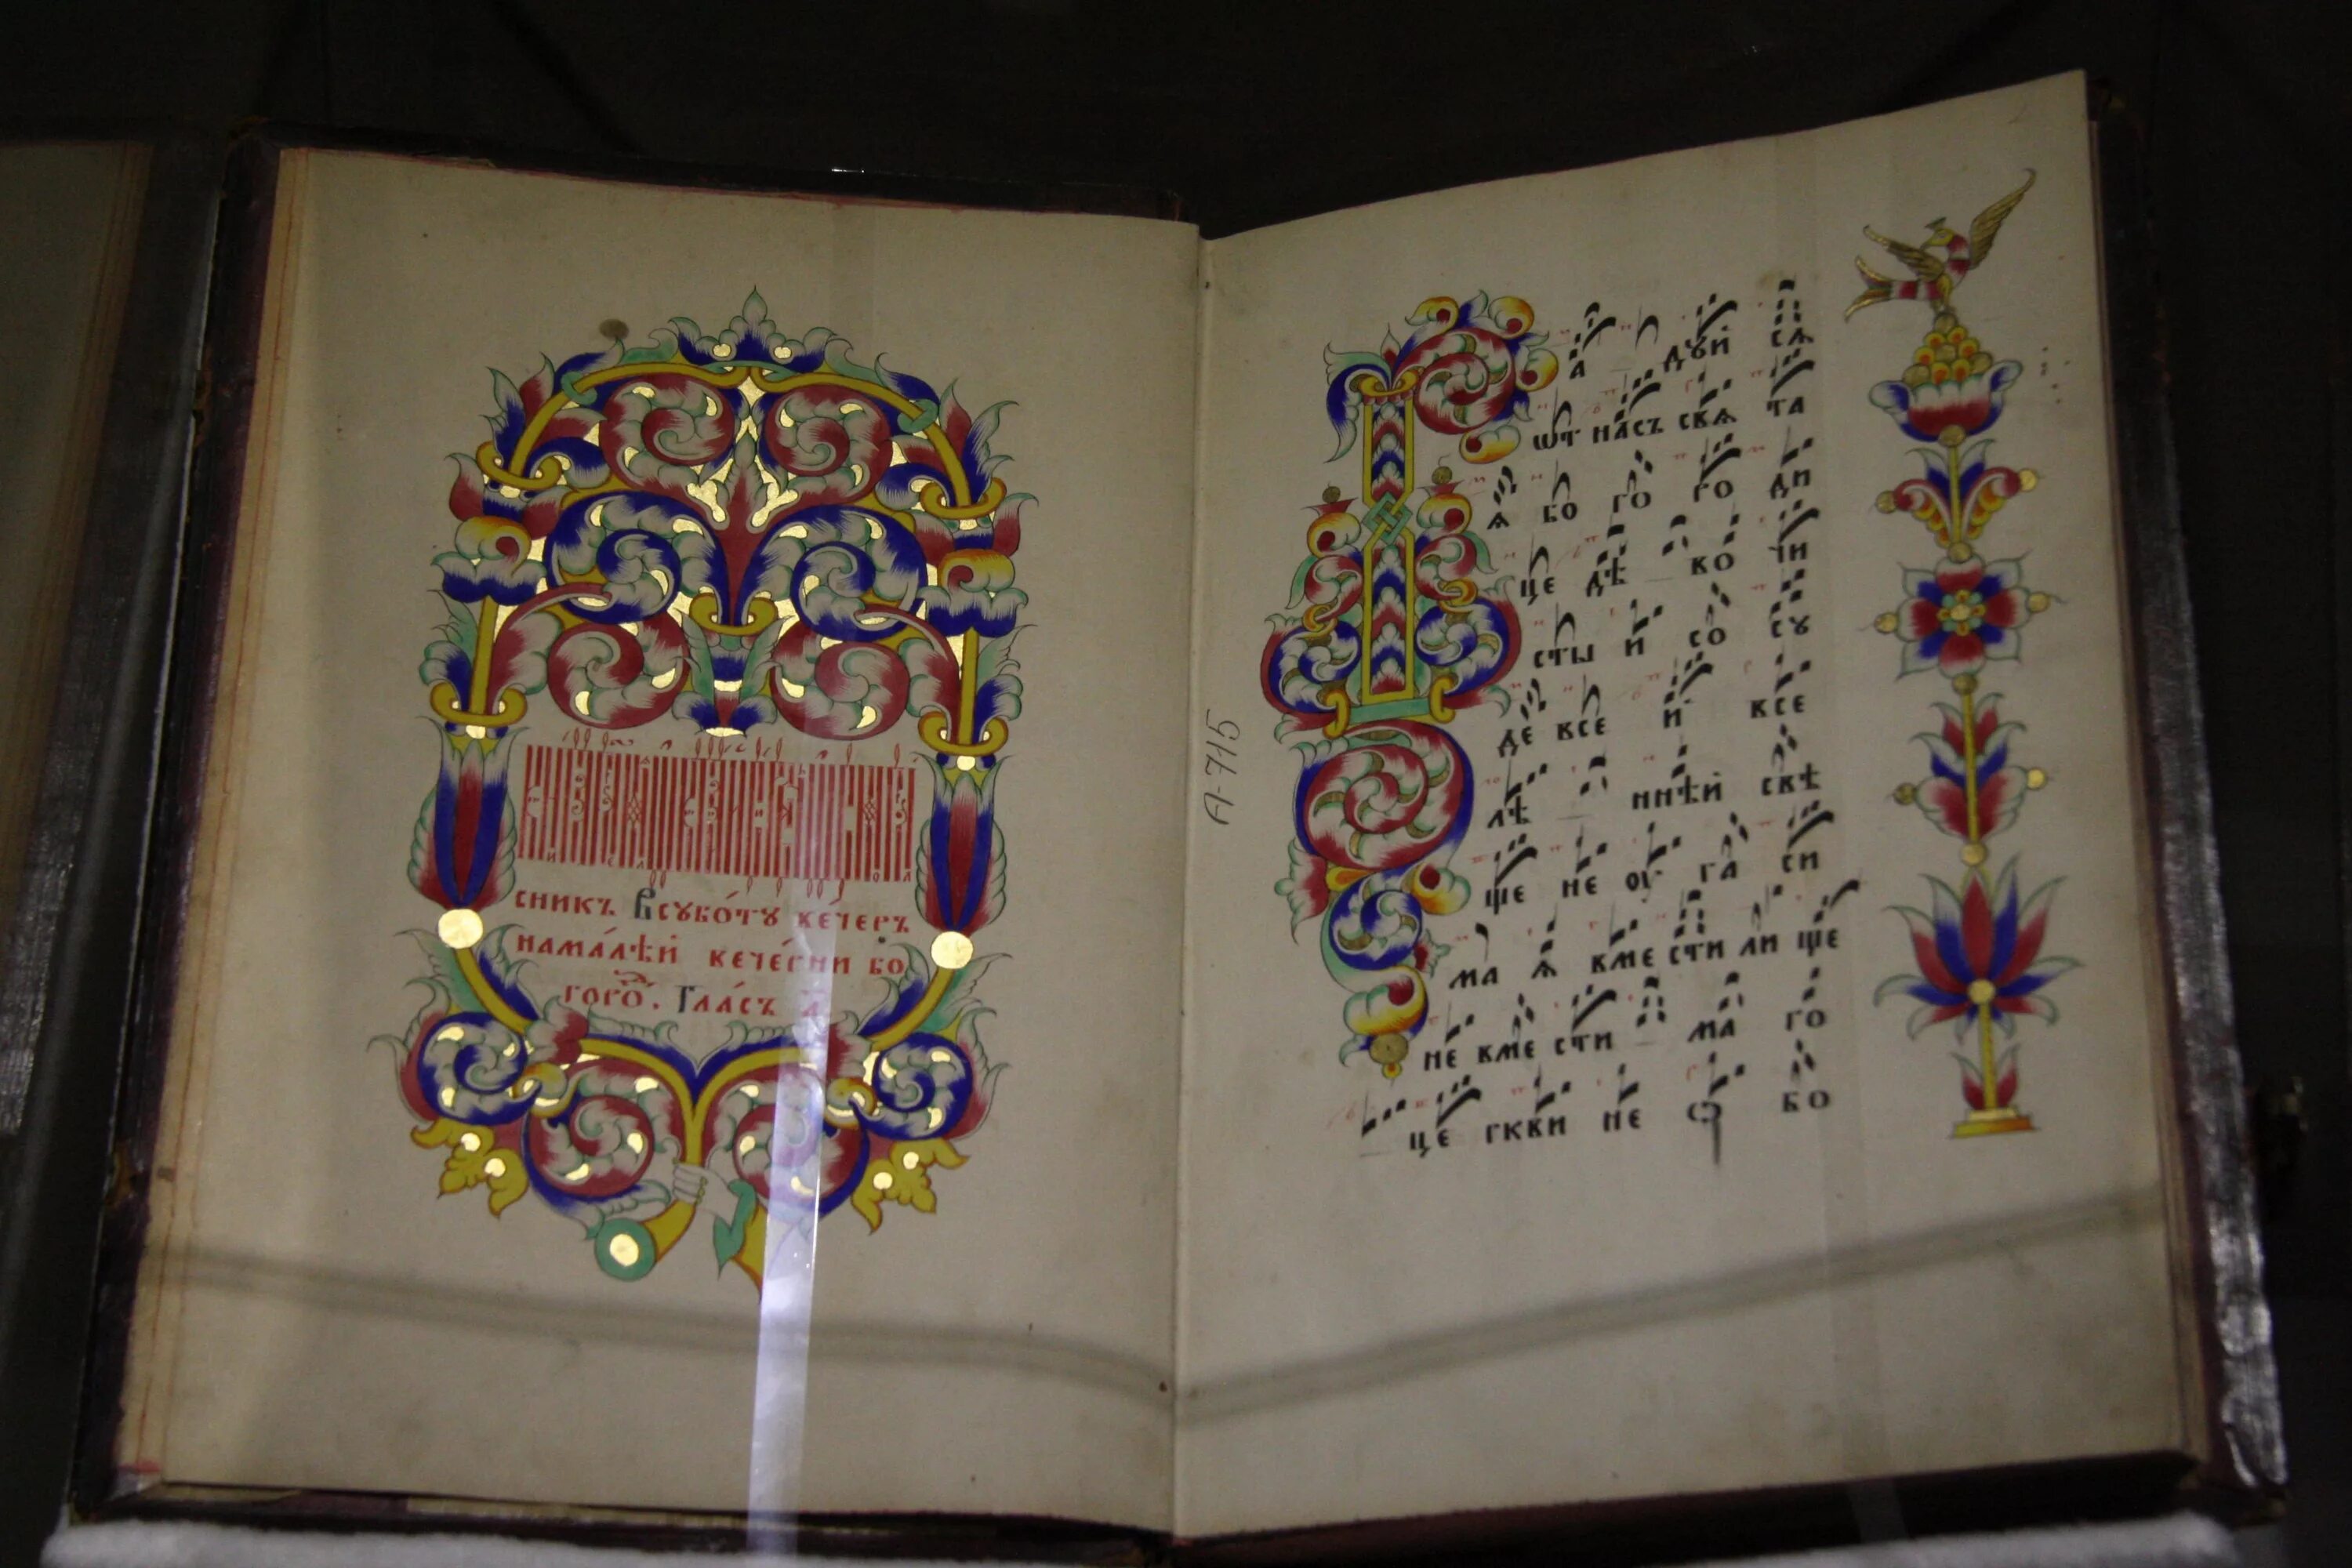 сникъ Всꙋбо́тꙋ ве́черъ
нама́лѣй вече́рни бо
горо́. Гла́съ а҃
А-715
а дꙋй сѧ
ѿ насъ свѧ та
ѧ бо го ро ди
це дѣ во чи
сты и со сꙋ
де все и все
лѣ ннѣй свѣ
ще не оу га си
ма ѧ вме сти ли ще
не вме сти ма го
це ркви не ѻ бо